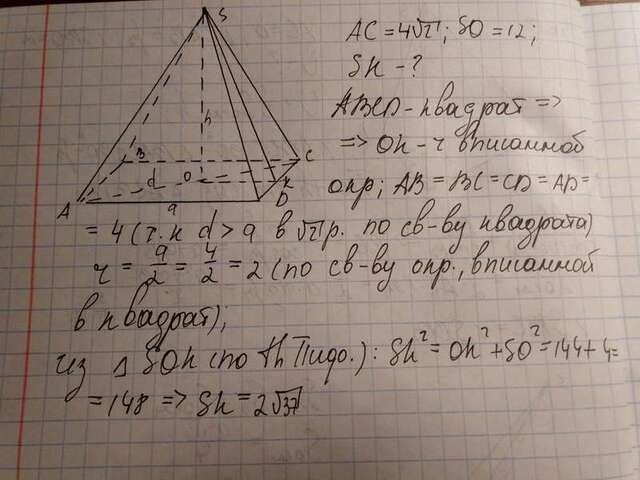 S
AC = 4√2; SO = 12;
SK - ?
h
ABCD - квадрат =>
B
C
=> OK - r вписанной
d
O
K
A
a
D
окр; AB = BC = CD = AD =
= 4 (т.к d > a в √2 р. по св-ву квадрата)
r = a/2 = 4/2 = 2 (по св-ву окр., вписанной
в квадрат);
Из △ SOK (по th Пифо.): SK² = OK² + SO² = 144 + 4 =
= 148 => SK = 2√37